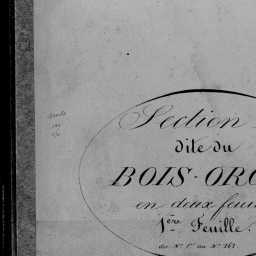 Section
dite du
BOIS-ORG
en deux feui
1ère Feuille.
du N° 1er au N° 263.